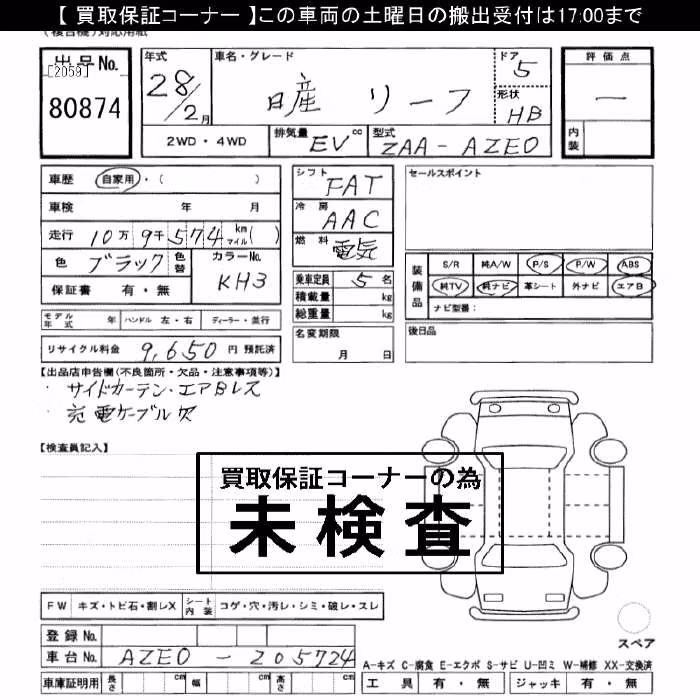 【 買取保証コーナー 】この車両の土曜日の搬出受付は17:00まで
出品No.
[2059]
80874
年式
28/2月
車名・グレード
日産 リーフ
ドア
5
形状
HB
評価点
―
内装
2WD・4WD
排気量
EV cc
型式
ZAA-AZE0
車歴 自家用・( )
車検 年 月
走行 10万9千574km マイル( )
色 ブラック 色替
カラーNo.
KH3
保証書 有・無
モデル年式 年
ハンドル 左・右
ディーラー・並行
リサイクル料金 9,650円 預託済
シフト
FAT
冷房
AAC
燃料
電気
乗車定員 5名
積載量 kg
総重量 kg
名変期限
月 日
セールスポイント
装備品
S/R 純A/W P/S P/W ABS
純TV 純ナビ 革シート 外ナビ エアB
ナビ型番:
後日品
【出品店申告欄(不良箇所・欠品・注意事項等)】
・サイドカーテン・エアBレス
・充電ケーブル欠
【検査員記入】
買取保証コーナーの為
未検査
FW キズ・トビ石・割レX
シート内装 コゲ・穴・汚レ・シミ・破レ・スレ
登録No.
車台No. AZE0-205724
車庫証明用 長さ cm 幅 cm 高さ cm
スペア
A-キズ C-腐食 E-エクボ S-サビ U-凹ミ W-補修 XX-交換済
工具 有・無 ジャッキ 有・無